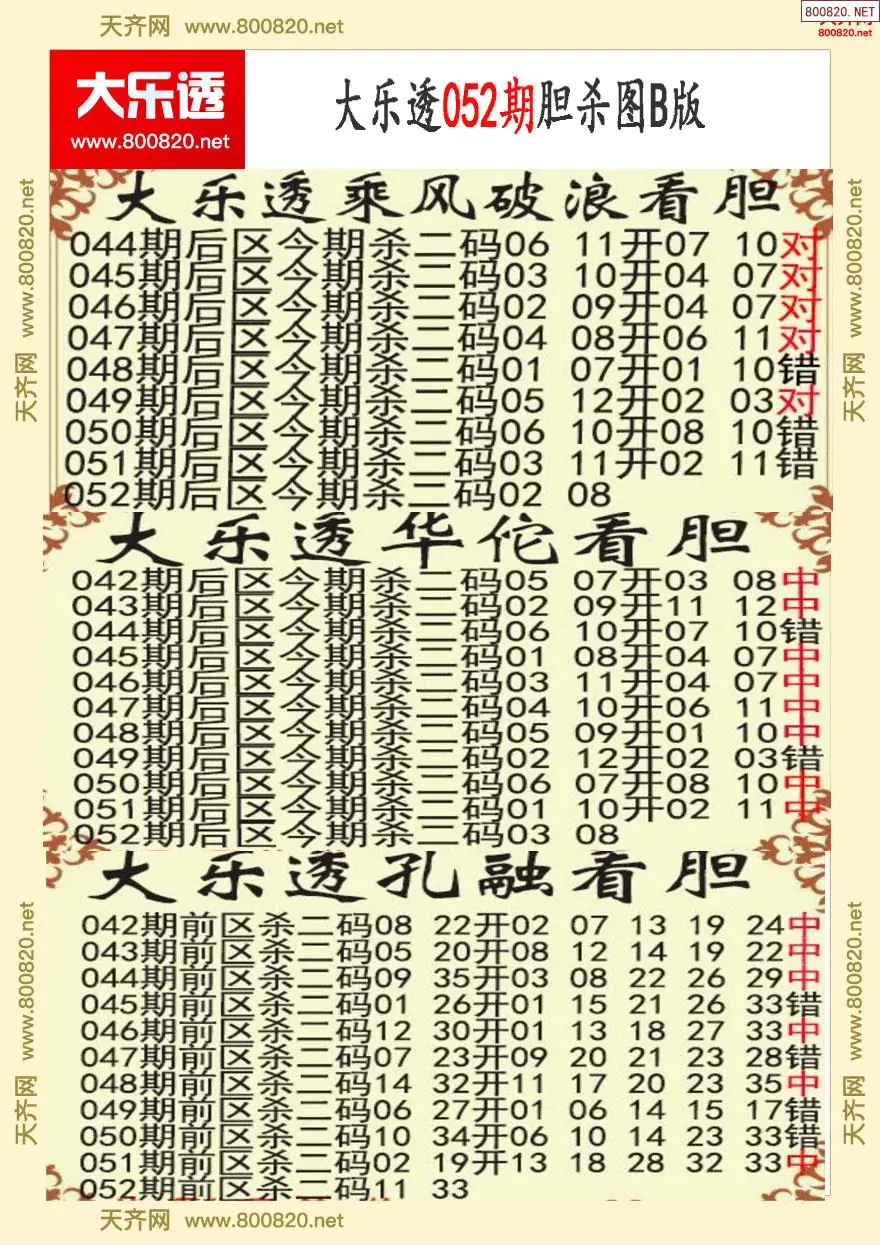 天齐网 www.800820.net
800820.NET
800820.net
大乐透
www.800820.net
大乐透052期胆杀图B版
大乐透乘风破浪看胆
044期后区今期杀二码06 11开07 10对
045期后区今期杀二码03 10开04 07对
046期后区今期杀二码02 09开04 07对
047期后区今期杀二码04 08开06 11对
048期后区今期杀二码01 07开01 10错
049期后区今期杀二码05 12开02 03对
050期后区今期杀二码06 10开08 10错
051期后区今期杀二码03 11开02 11错
052期后区今期杀二码02 08
大乐透华佗看胆
042期后区今期杀二码05 07开03 08中
043期后区今期杀二码02 09开11 12中
044期后区今期杀二码06 10开07 10错
045期后区今期杀二码01 08开04 07中
046期后区今期杀二码03 11开04 07中
047期后区今期杀二码04 10开06 11中
048期后区今期杀二码05 09开01 10中
049期后区今期杀二码02 12开02 03错
050期后区今期杀二码06 07开08 10中
051期后区今期杀二码01 10开02 11中
052期后区今期杀二码03 08
大乐透孔融看胆
042期前区杀二码08 22开02 07 13 19 24中
043期前区杀二码05 20开08 12 14 19 22中
044期前区杀二码09 35开03 08 22 26 29中
045期前区杀二码01 26开01 15 21 26 33错
046期前区杀二码12 30开01 13 18 27 33中
047期前区杀二码07 23开09 20 21 23 28错
048期前区杀二码14 32开11 17 20 23 35中
049期前区杀二码06 27开01 06 14 15 17错
050期前区杀二码10 34开06 10 14 23 33错
051期前区杀二码02 19开13 18 28 32 33中
052期前区杀二码11 33
天齐网 www.800820.net
天齐网 www.800820.net
天齐网 www.800820.net
天齐网 www.800820.net
天齐网 www.800820.net